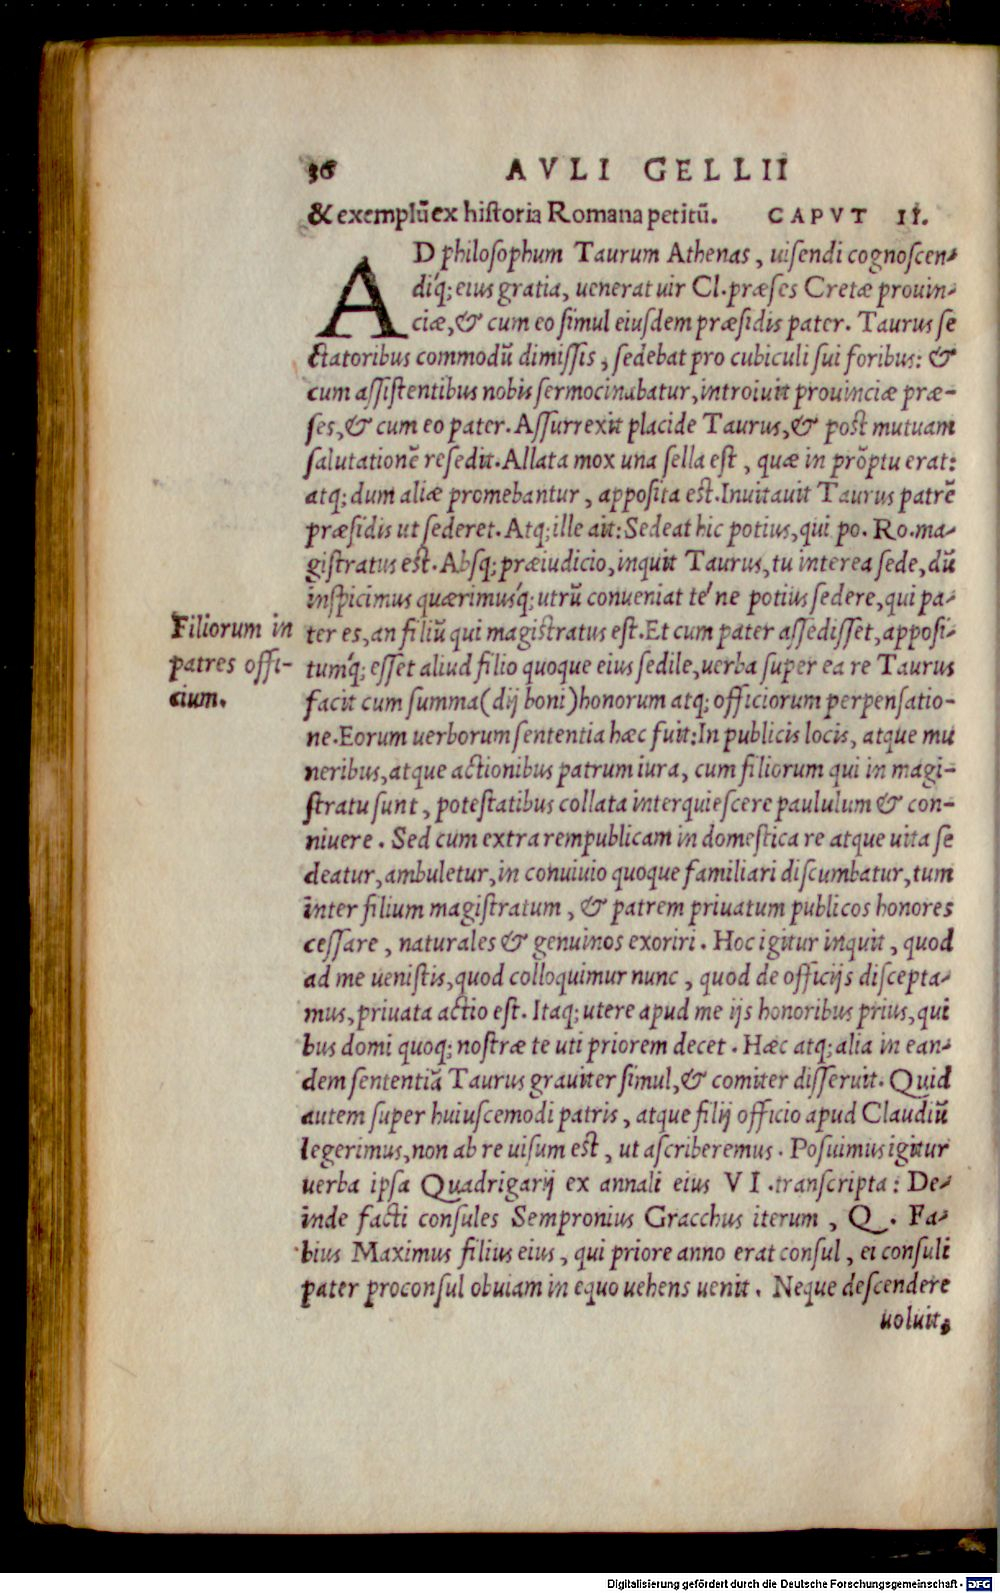 36 AVLI GELLII
& exemplũ ex historia Romana petitũ. CAPVT II.
AD philosophum Taurum Athenas, uisendi cognoscen-
diq́; eius gratia, uenerat uir Cl. præses Cretæ prouin-
ciæ, & cum eo simul eiusdem præsidis pater. Taurus se
ctatoribus commodũ dimissis, sedebat pro cubiculi sui foribus: &
cum assistentibus nobis sermocinabatur, introiuit prouinciæ præ-
ses, & cum eo pater. Assurrexit placide Taurus, & post mutuam
salutationẽ resedit. Allata mox una sella est, quæ in prõptu erat:
atq; dum aliæ promebantur, apposita est. Inuitauit Taurus patrẽ
præsidis ut sederet. Atq; ille ait: Sedeat hic potius, qui po. Ro. ma-
gistratus est. Absq; præiudicio, inquit Taurus, tu interea sede, dũ
inspicimus quærimusq́; utrũ conueniat té ne potius sedere, qui pa-
ter es, an filiũ qui magistratus est. Et cum pater assedisset, apposi-
Filiorum in
patres offi-
cium.
tumq́; esset aliud filio quoque eius sedile, uerba super ea re Taurus
facit cum summa (dij boni) honorum atq; officiorum perpensatio-
ne. Eorum uerborum sententia hæc fuit: In publicis locis, atque mu
neribus, atque actionibus patrum iura, cum filiorum qui in magi-
stratu sunt, potestatibus collata interquiescere paululum & con-
niuere. Sed cum extra rempublicam in domestica re atque uita se
deatur, ambuletur, in conuiuio quoque familiari discumbatur, tum
inter filium magistratum, & patrem priuatum publicos honores
cessare, naturales & genuinos exoriri. Hoc igitur inquit, quod
ad me uenistis, quod colloquimur nunc, quod de officijs discepta-
mus, priuata actio est. Itaq; utere apud me ijs honoribus prius, qui
bus domi quoq; nostræ te uti priorem decet. Hæc atq; alia in ean-
dem sententiã Taurus grauiter simul, & comiter disseruit. Quid
autem super huiuscemodi patris, atque filij officio apud Claudiũ
legerimus, non ab re uisum est, ut ascriberemus. Posuimus igitur
uerba ipsa Quadrigarij ex annali eius VI. transcripta: De-
inde facti consules Sempronius Gracchus iterum, Q. Fa-
bius Maximus filius eius, qui priore anno erat consul, ei consuli
pater proconsul obuiam in equo uehens uenit. Neque descendere
uoluit,
Digitalisierung gefördert durch die Deutsche Forschungsgemeinschaft - DFG